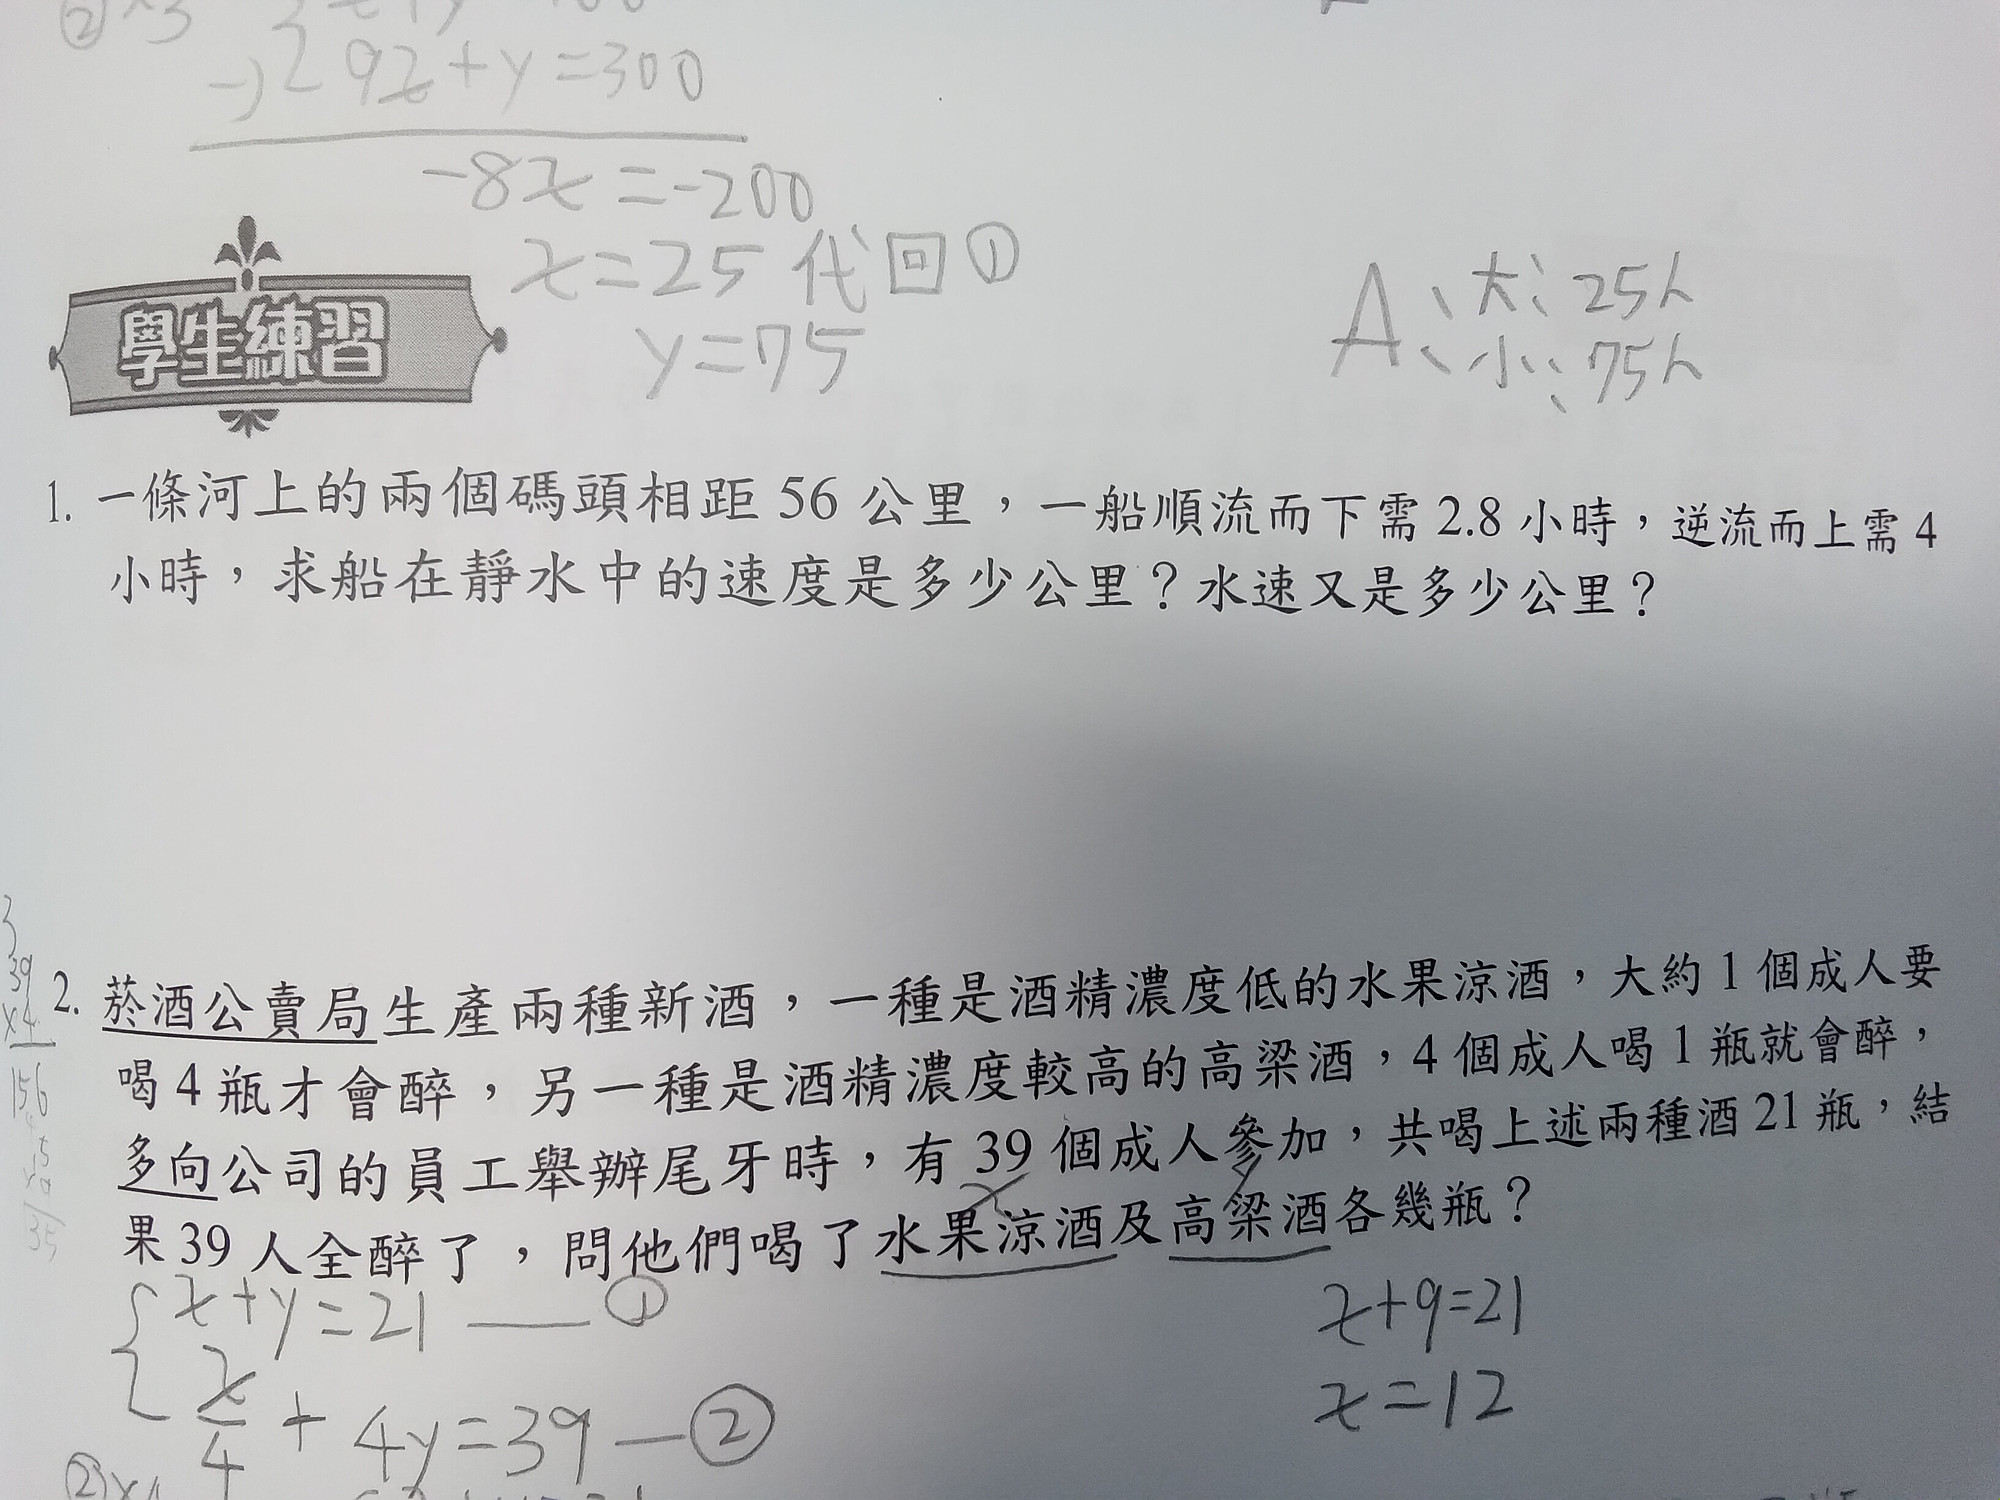 ②×3
-) 9x+y=300
-8x=-200
x=25 代回①
y=75
A、大:25人
小:75人
學生練習
1. 一條河上的兩個碼頭相距 56 公里，一船順流而下需 2.8 小時，逆流而上需 4
小時，求船在靜水中的速度是多少公里？水速又是多少公里？
39
×4
156
2. 菸酒公賣局生產兩種新酒，一種是酒精濃度低的水果涼酒，大約 1 個成人要
喝 4 瓶才會醉，另一種是酒精濃度較高的高梁酒，4 個成人喝 1 瓶就會醉，
多向公司的員工舉辦尾牙時，有 39 個成人參加，共喝上述兩種酒 21 瓶，結
x y
果 39 人全醉了，問他們喝了水果涼酒及高梁酒各幾瓶？
x+y=21 — ①
x/4 + 4y=39 — ②
x+9=21
x=12